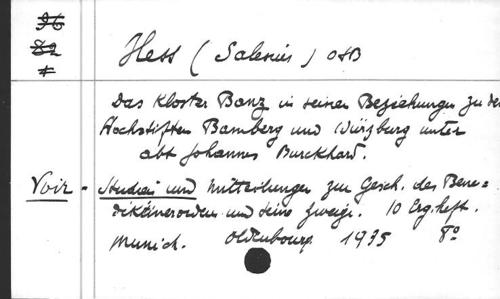 96
82
Hess (Salesius) OSB
Das Kloster Banz in seinen Beziehungen zu den
Hochstiften Bamberg und Würzburg unter
abt Johannes Burckhard.
Voir - Studien und Mitteilungen zur Gesch. des Bene=
diktinerorden und seine Zweige. 10 Erg. heft.
Munich. Oldenbourg 1935 8°